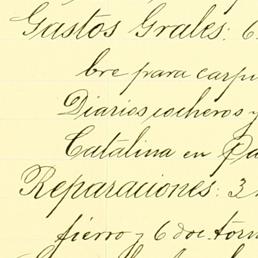 Gastos Grales: 6
bre para carpi
Diarios cocheros y
Catalina en Pa
Reparaciones: 3
fierro y 6 doc. torn